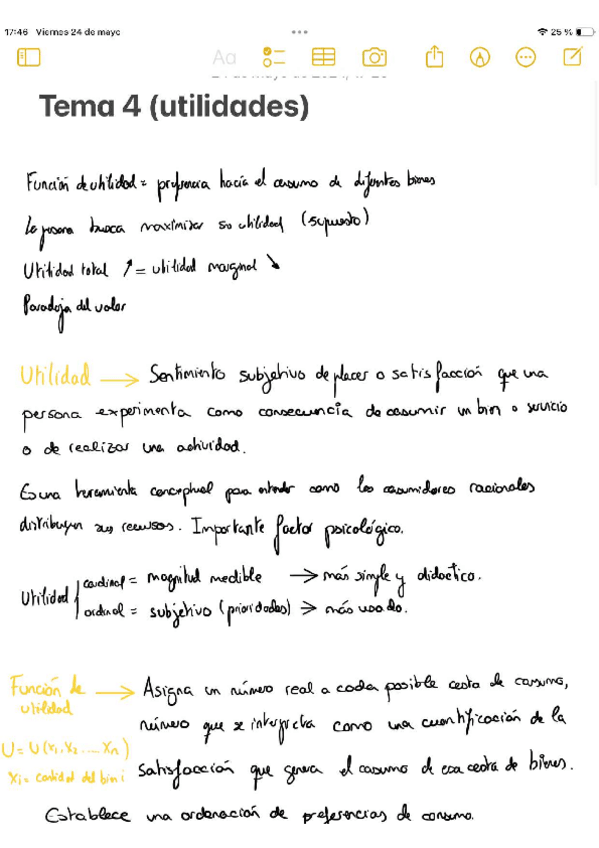 17:46 Viernes 24 de mayo
25 %
Aa
Tema 4 (utilidades)
Función de utilidad = preferencia hacia el consumo de diferentes bienes
la persona busca maximizar su utilidad (supuesto)
Utilidad total ↗ = utilidad marginal ↘
Paradoja del valor
Utilidad → Sentimiento subjetivo de placer o satisfacción que una
persona experimenta como consecuencia de consumir un bien o servicio
o de realizar una actividad.
Es una herramienta conceptual para entender como los consumidores racionales
distribuyen sus recursos. Importante factor psicológico.
Utilidad
cardinal = magnitud medible → más simple y didactico.
ordinal = subjetivo (prioridades) → más usado.
Función de utilidad → Asigna un número real a cada posible cesta de consumo,
número que se interpreta como una cuantificación de la
U = U(x₁, x₂ .... xₙ)
xᵢ = cantidad del bien i
satisfacción que genera el consumo de esa cesta de bienes.
Establece una ordenación de preferencias de consumo.